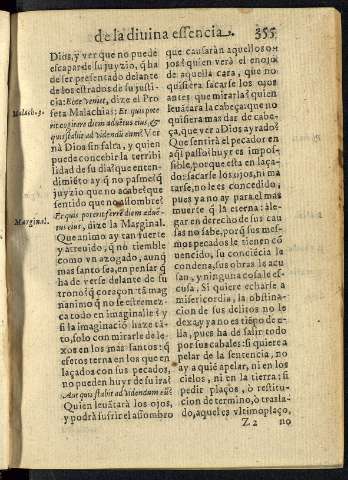 de la diuina essencia.
355
Dios, y ver que no puede
escapar de su juyzio, q̃ ha
de ser presentado delante
de los estrados de su justi
cia: Ecce venit, dize el Pro
Malach. 3.
feta Malachias: Et quis pote
rit cogitare diem aduẽtus eius, &
quis stabit ad videndũ eum? Ver
nà Dios sin falta, y quien
puede concebir la terribi
lidad de su dia? que enten
dimiẽto ay q̃ no pasme? q̃
juyzio que no acabe? que
sentido que no assombre?
Et quis poterit ferre diem aduẽ
tus eius, dize la Marginal.
Marginal.
Que animo ay tan fuerte
y atreuido, que no tiemble
como vn azogado, aunq̃
mas santo sea, en pensar q̃
ha de verse delante de su
trono? q̃ coraçon tã mag
nanimo q̃ no se estremez
ca todo en imaginalle? y
si la imaginaciõ haze tã
to, solo con mirarle de le
xos en los mas santos: q̃
efetos terna en los que en
laçados con sus pecados,
no pueden huyr de su ira?
Aut quis stabit ad videndum eũ?
Quien leuãtarà los ojos,
y podrà sufrir el assombro
que causaràn aquellos o
jos? quien verà el enojo
de aquella cara, que no
quisiera sacarse los ojos
antes que mirarla? quien
leuãtara la cabeça, que no
quisiera mas dar de cabe
ça, que ver a Dios ayrado?
Que sentirà el pecador en
aq̃l passo? huyr es impos
sible, porque esta en laça
do: sacarse los ojos, ni ma
tarse, no le es concedido,
pues ya no ay para el mas
muerte q̃ la eterna: ale-
gar en derecho de sus cau
sas no sabe, porq̃ sus mes-
mos pecados le tienen cõ
uencido, su conciẽcia le
condena, sus obras le acu
san, y ninguna cosa le es-
cusa. Si quiere echarse a
misericordia, la obstina-
cion de sus delitos no le
dexa, y ya no es tiẽpo de e
lla, pues ha de salir todo
por sus cabales: si quiere a
pelar de la sentencia, no
ay a quiẽ apelar, ni en los
cielos, ni en la tierra: si
pedir plaços, ò restitu-
cion de termino, ò trasla-
do, aquel es vltimo plaço,
Z 2
no